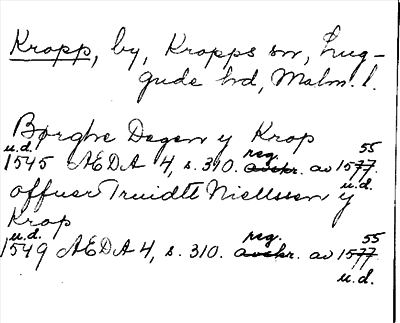 Kropp, by, Kropps sn, Lug-
gude hd, Malm. l.
Børghe Degen y Krop
u.d. reg. 55
1545 AEDA 4, s. 310. avskr. av 1577
u.d.
offuer Truidtt Niellssen y
Krop
u.d. reg. 55
1549 AEDA 4, s. 310. avskr. av 1577
u.d.